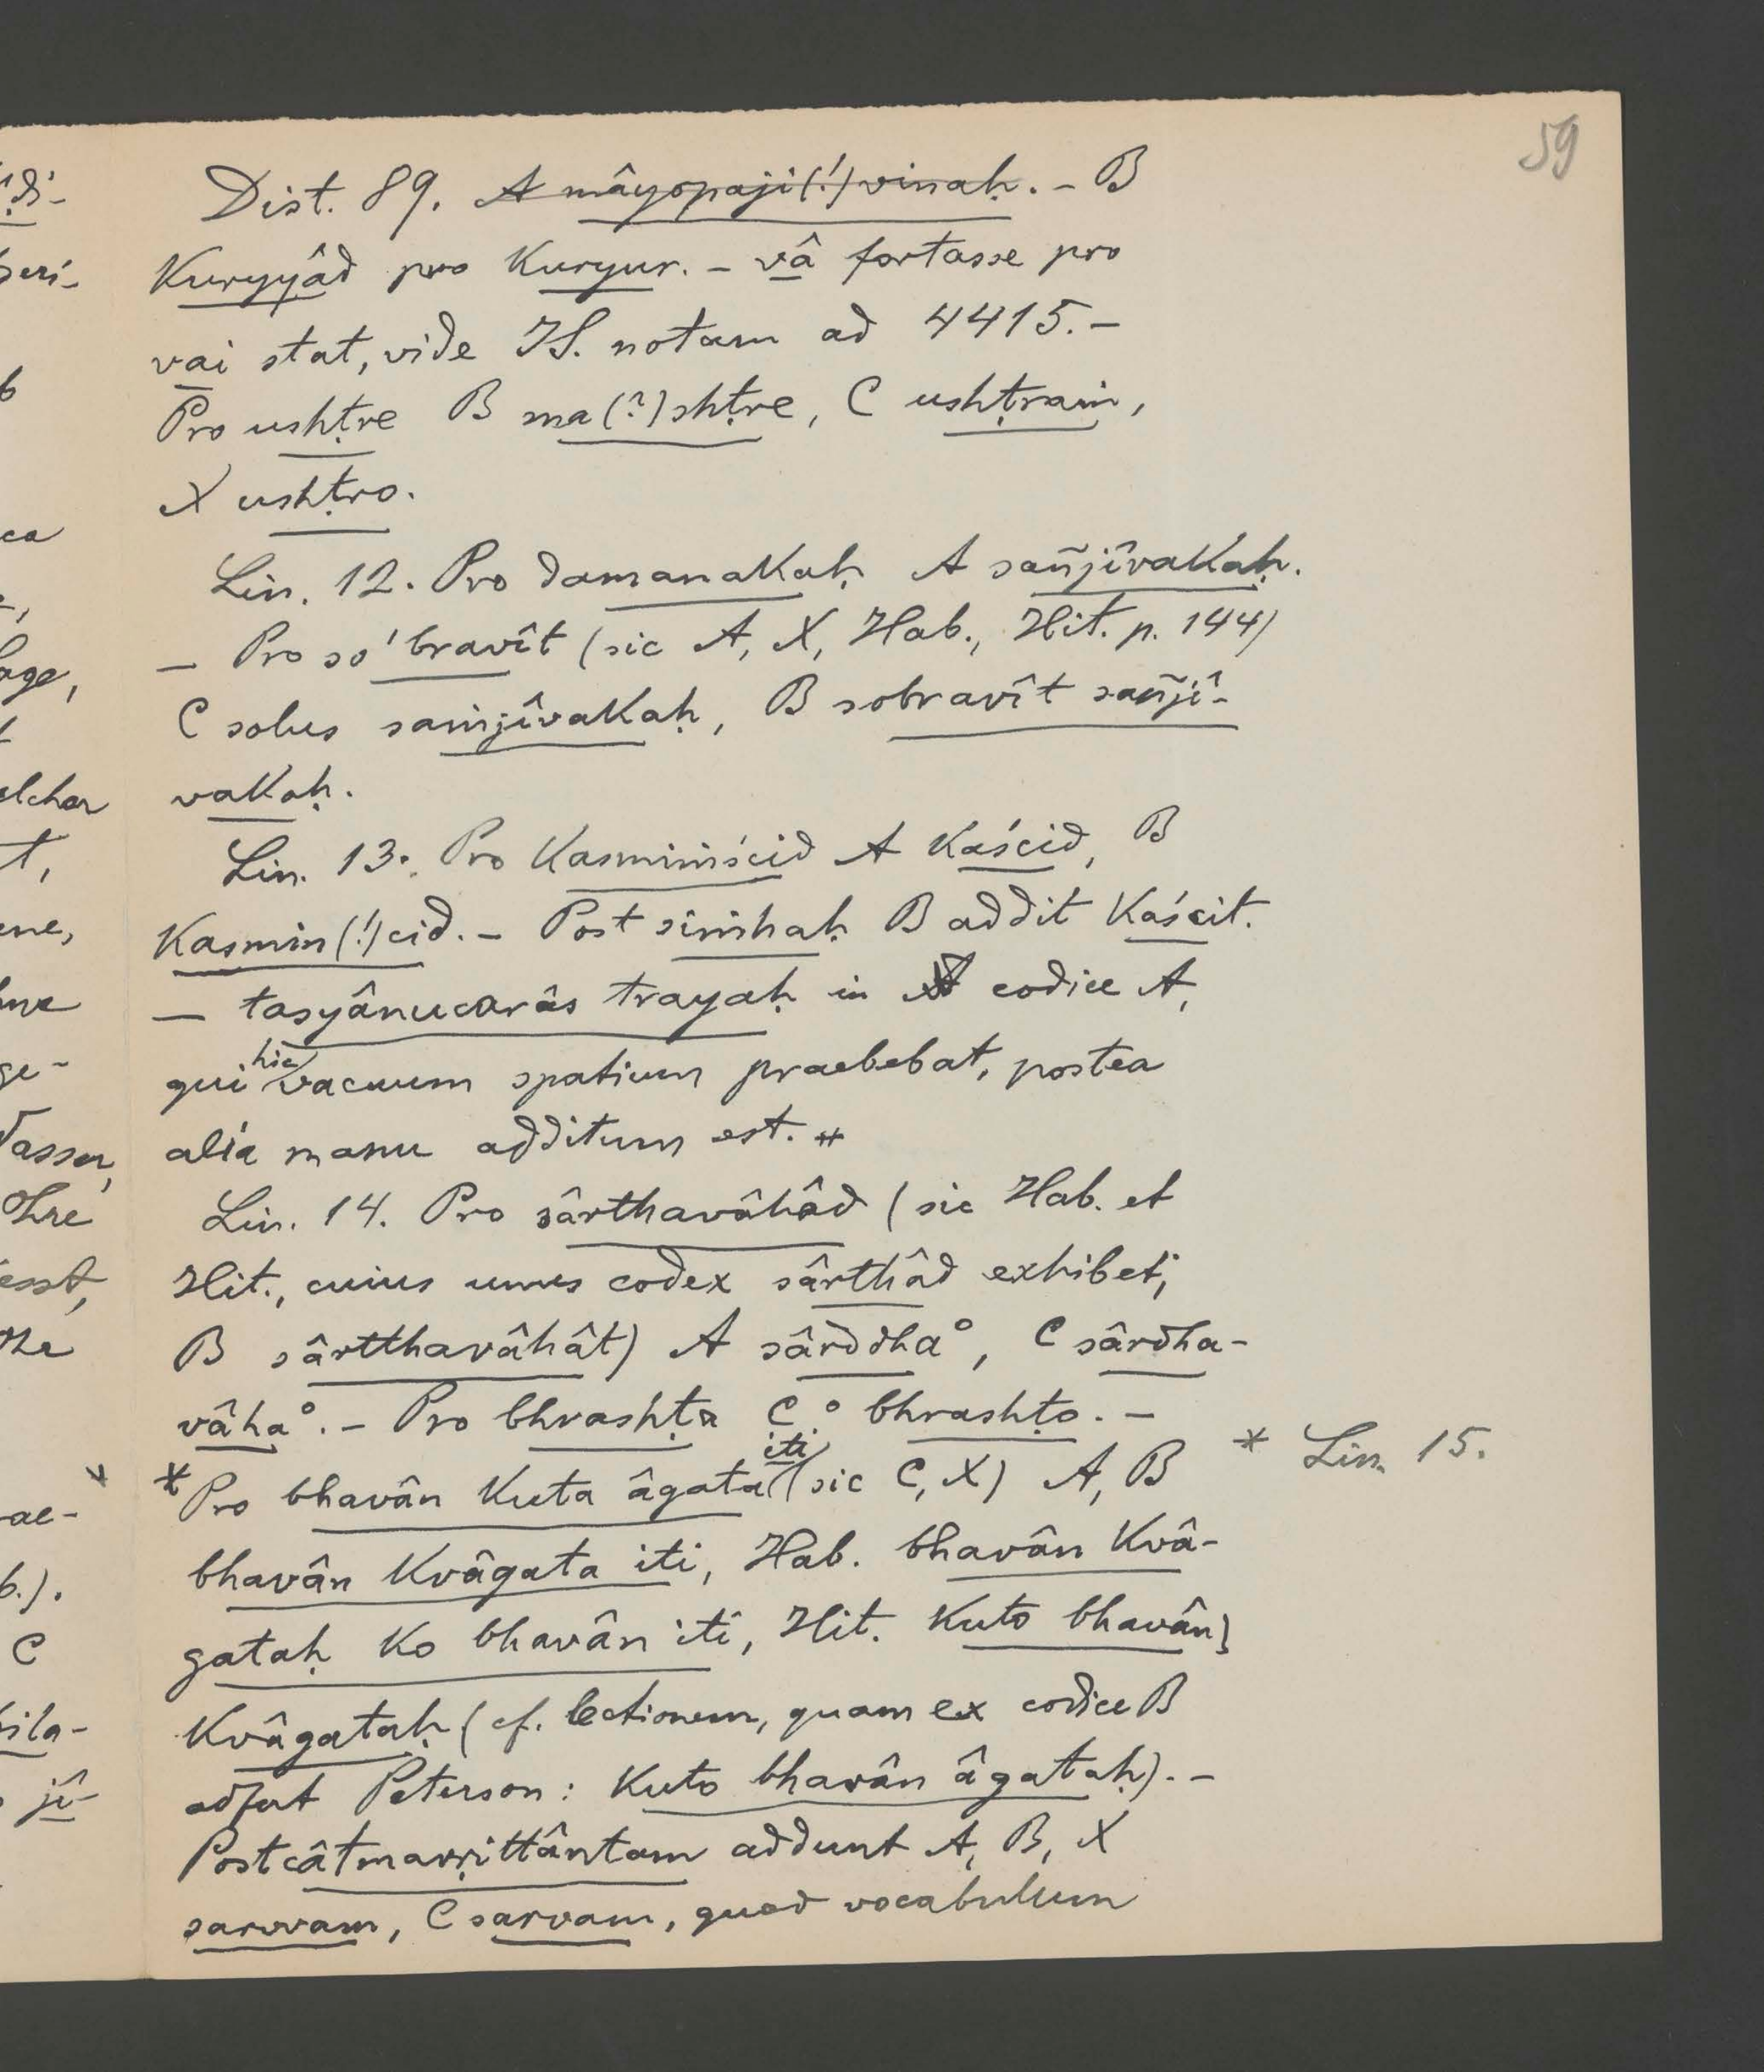 59
Dist. 89. A mâyopaji(!)vinaḥ. – B
Kuryyâd pro Kuryur. – vâ fortasse pro
vai stat, vide IS. notam ad 4415. –
Pro ushṭre B ma(?)shṭre, C ushṭraṁ,
X ushṭro.
Lin. 12. Pro damanakaḥ A sañjîvakaḥ.
– Pro so'bravît (sic A, X, Hab., Hit. p. 144)
C solus saṁjîvakaḥ, B sobravît sañjî-
vakaḥ.
Lin. 13. Pro Kasmiṁścid A Kaścid, B
Kasmin(!)cid. – Post siṁhaḥ B addit Kaścit.
– tasyânucarâs trayaḥ in codice A,
qui hic vacuum spatium praebebat, postea
alia manu additum est. #
Lin. 14. Pro sârthavâhâd (sic Hab. et
Hit., cuius unus codex sârthâd exhibet;
B sârtthavâhât) A sârddha°, C sârdha-
vâha°. – Pro bhrashṭa C ° bhrashṭo. –
* Pro bhavân Kuta âgata iti (sic C, X) A, B
* Lin. 15.
bhavân Kvâgata iti, Hab. bhavân Kvâ-
gataḥ Ko bhavân iti, Hit. Kuto bhavân
Kvâgataḥ (cf. lectionem, quam ex codice B
adfert Peterson: Kuto bhavân âgataḥ). –
Post câtmavṛittântam addunt A, B, X
sarvvam, C sarvam, quod vocabulum